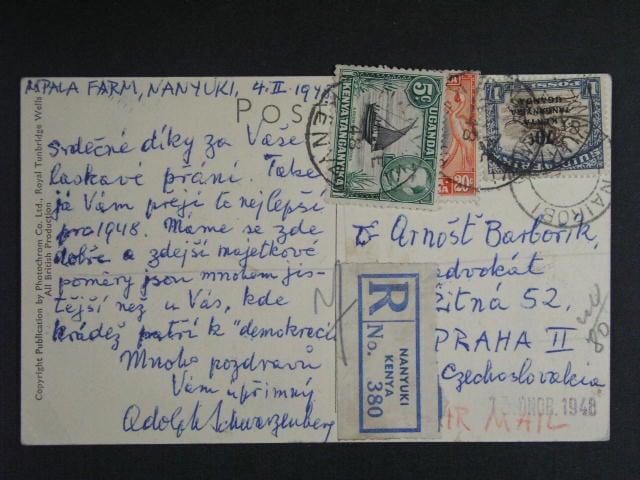 MPALA FARM, NANYUKI, 4.II.194
POS
Srdečné díky za Vaše
laskavé přání. Také
já Vám přeji to nejlepší
pro 1948. Máme se zde
dobře a zdejší majetkové
poměry jsou mnohem jis-
tější než u Vás, kde
krádež patří k "demokracii
Mnoho pozdravů
Vám upřímný
Adolph Schwarzenberg
Copyright Publication by Photochrom Co. Ltd., Royal Tunbridge Wells
All British Production
5c
KENYA TANGANYIKA
UGANDA
20c
KENYA
TANGANYIKA
UGANDA
70c
NAIROBI
Arnošt Barbořík,
advokát
Žitná 52.
PRAHA II
Czechoslovakia
R
No.
NANYUKI
KENYA
380
ÚNOR. 1948
AIR MAIL